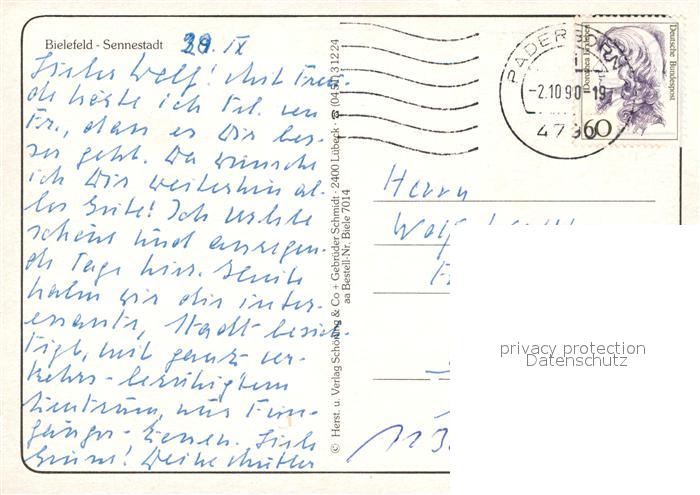 Bielefeld - Sennestadt 30. IX
Lieber Wolf! Mit Freu-
de hörte ich Tel. von
Fr., dass es Dir bes-
ser geht. Da wünsche
ich Dir weiterhin al-
les Gute! Ich erlebe
schöne und anregen-
de Tage hier. Heute
haben wir die inter-
essante, Stadt besich-
tigt, mit ganz ver-
kehrs-beruhigtem
Zentrum, nur Fuss-
gänger-Zonen. Liebe
Grüsse! Deine Mutter
© Herst. u. Verlag Schöning & Co + Gebrüder Schmidt · 2400 Lübeck · ☎ (0451) 31224
aa Bestell-Nr. Biele 7014
PADERBORN
-2.10.90-19
4790
Deutsche Bundespost
60
Herrn
Wolf
privacy protection
Datenschutz